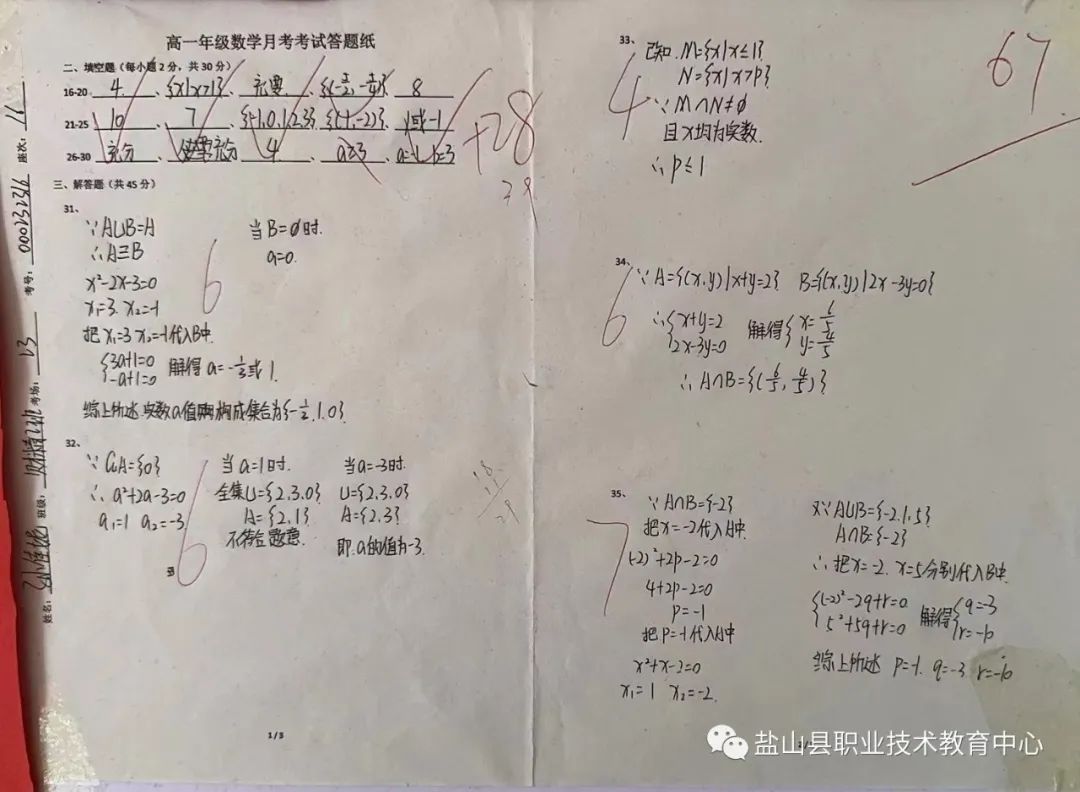 高一年级数学月考考试答题纸
二、填空题（每小题2分，共30分）
16-20 4、{x|x>1}、充要、8
21-25 10、7、{-1,0,1,2,3}、{(-1,-2)}、1或-1
26-30 充分、4、a≥3、a=-1, b=3
+28
三、解答题（共45分）
31、
∵A∪B=A
∴A⊇B
x²-2x-3=0
x₁=3. x₂=-1
把x₁=3 x₂=-1代入B中.
{3a+1=0
-a+1=0 解得 a=-1/3或1.
当B=∅时.
a=0.
6
综上所述.实数a值构成集合为{-1/3,1.0}.
32、
∵CᵤA={0}
∴a²+2a-3=0
a₁=1 a₂=-3
当a=1时.
全集U={2.3.0}
A={2.1}
不符合题意.
当a=-3时.
U={2.3.0}
A={2.3}
即.a的值为-3.
6
1 / 3
33、
已知.M={x|x≤1}
N={x|x>p}
∵M∩N≠∅
且x均为实数.
∴p≤1
4
67
34、
∵A={(x,y)|x+y=2} B={(x,y)|2x-3y=0}
∴{x+y=2
2x-3y=0 解得{x=6/5
y=4/5
∴A∩B={(6/5, 4/5)}
6
35、
∵A∩B={-2}
把x=-2代入A中.
(-2)²+2p-2=0
4+2p-2=0
p=-1
把p=-1代入A中
x²+x-2=0
x₁=1 x₂=-2.
又∵A∪B={-2.1.5}
A∩B={-2}
∴把x=-2. x=5分别代入B中.
{(-2)²-2q+r=0
5²+5q+r=0 解得{q=-3
r=-10
综上所述 p=-1. q=-3 r=-10
7
座长：11
考号：0002323216
考场：23
班级：
姓名：
盐山县职业技术教育中心